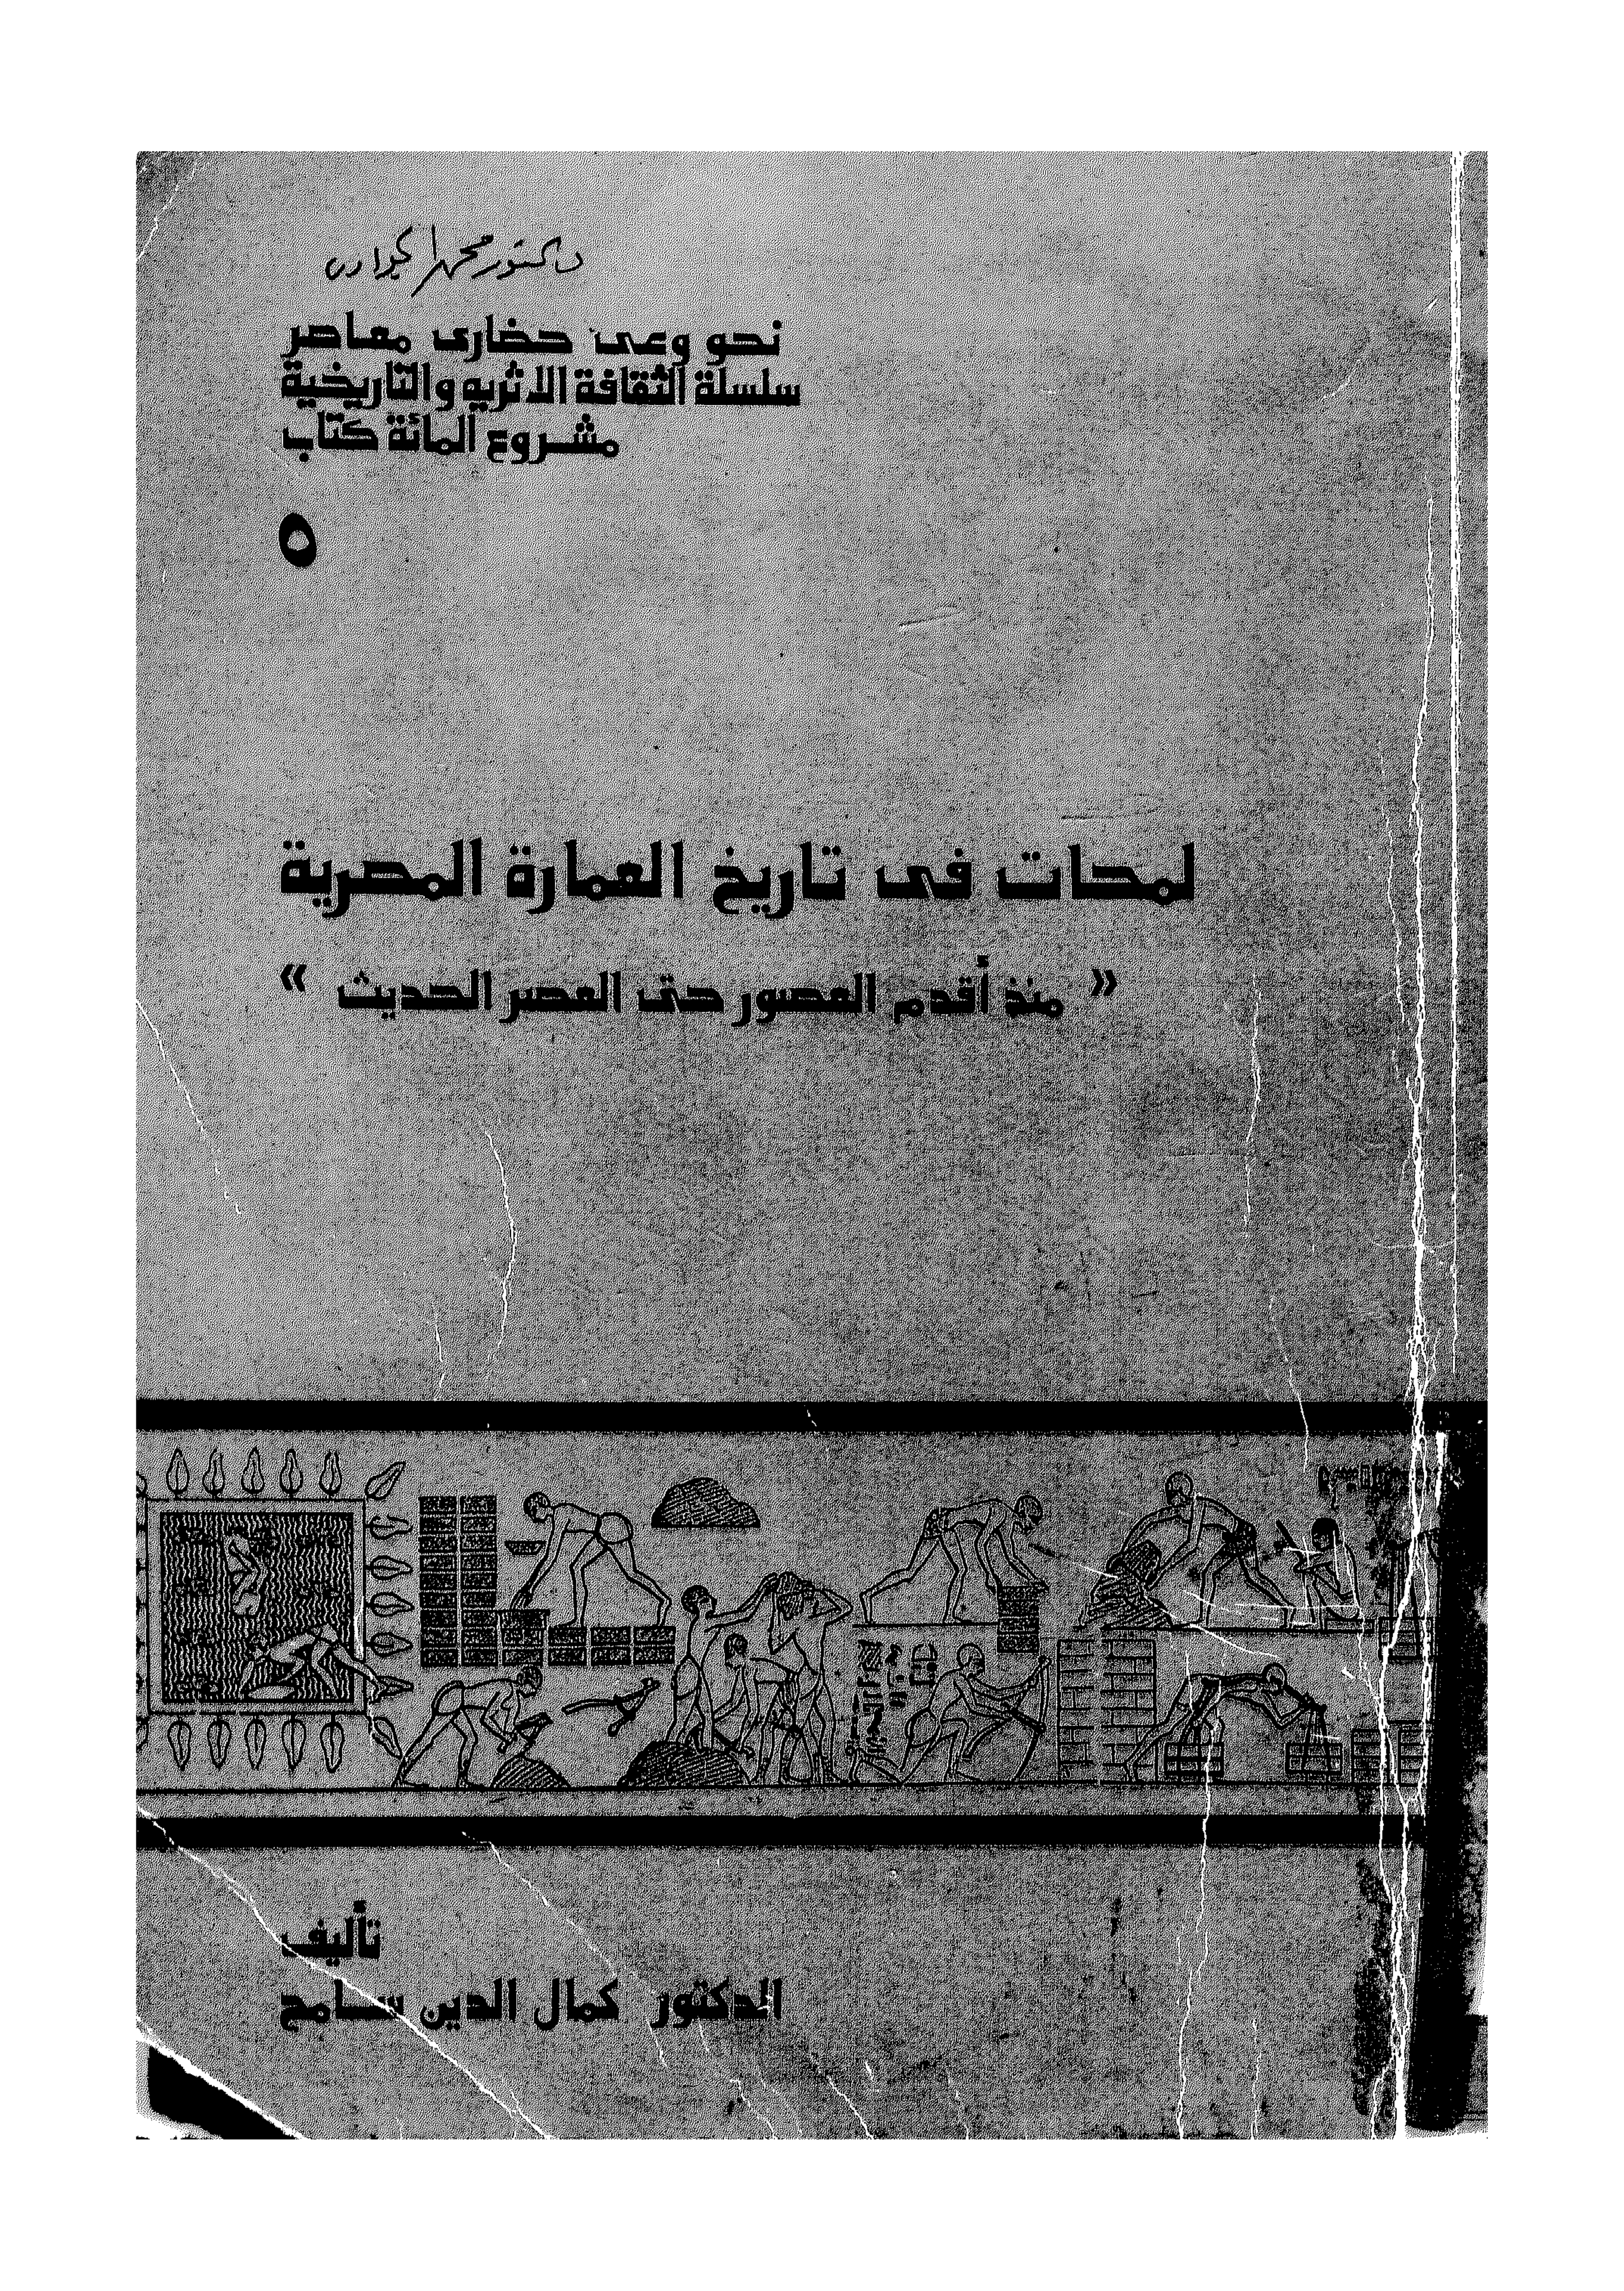 دكتور محمد
نحو وعى حضارى معاصر
سلسلة الثقافة الاثريه والتاريخية
مشروع المائة كتاب
٥
لمحات فى تاريخ العمارة المصرية
« منذ أقدم العصور حتى العصر الحديث »
تأليف
الدكتور كمال الدين سامح